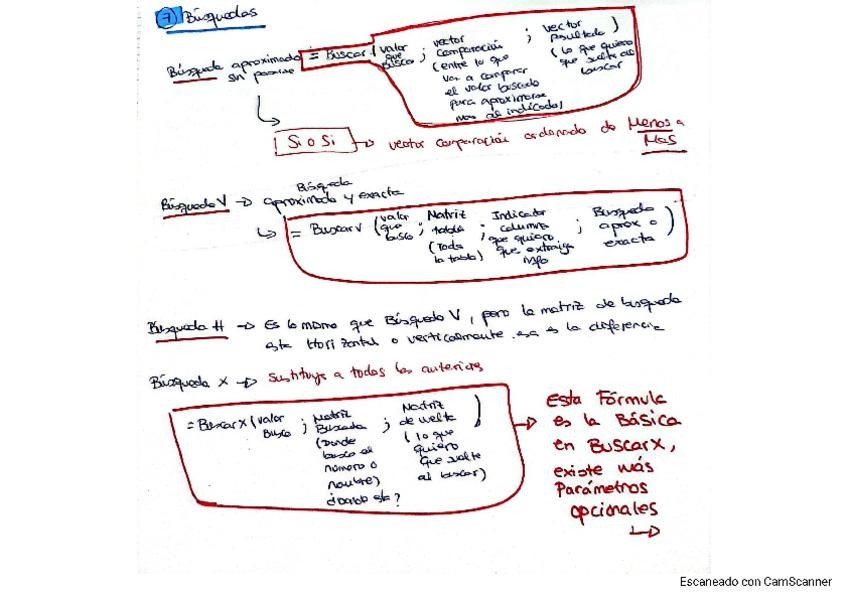 7 Búsquedas
Búsqueda aproximada = Buscar (valor que busco ; vector comparación (entre lo que va a comparar el valor buscado para aproximarse mas al indicado) ; vector resultado (lo que quiero que suelte al buscar) )
sin pasarse
Si o Si → vector comparación ordenado de Menos a Mas
Búsqueda V → Búsqueda aproximada y exacta
= BuscarV (valor que busco ; Matriz tabla (toda la tabla) ; Indicador columna que quiero que extraiga info ; Busqueda aprox o exacta )
Búsqueda H → Es lo mismo que Búsqueda V, pero la matriz de busqueda
esta Horizontal o verticalmente esa es la diferencia
Búsqueda X → sustituye a todas las anteriores
= BuscarX (valor busco ; Matriz Buscada (Donde busco el número o nombre) ¿Donde esta? ; Matriz devuelta (lo que quiero que suelte al buscar) )
Esta Fórmula
es la Básica
en BuscarX,
existe más
Parámetros
opcionales
Escaneado con CamScanner